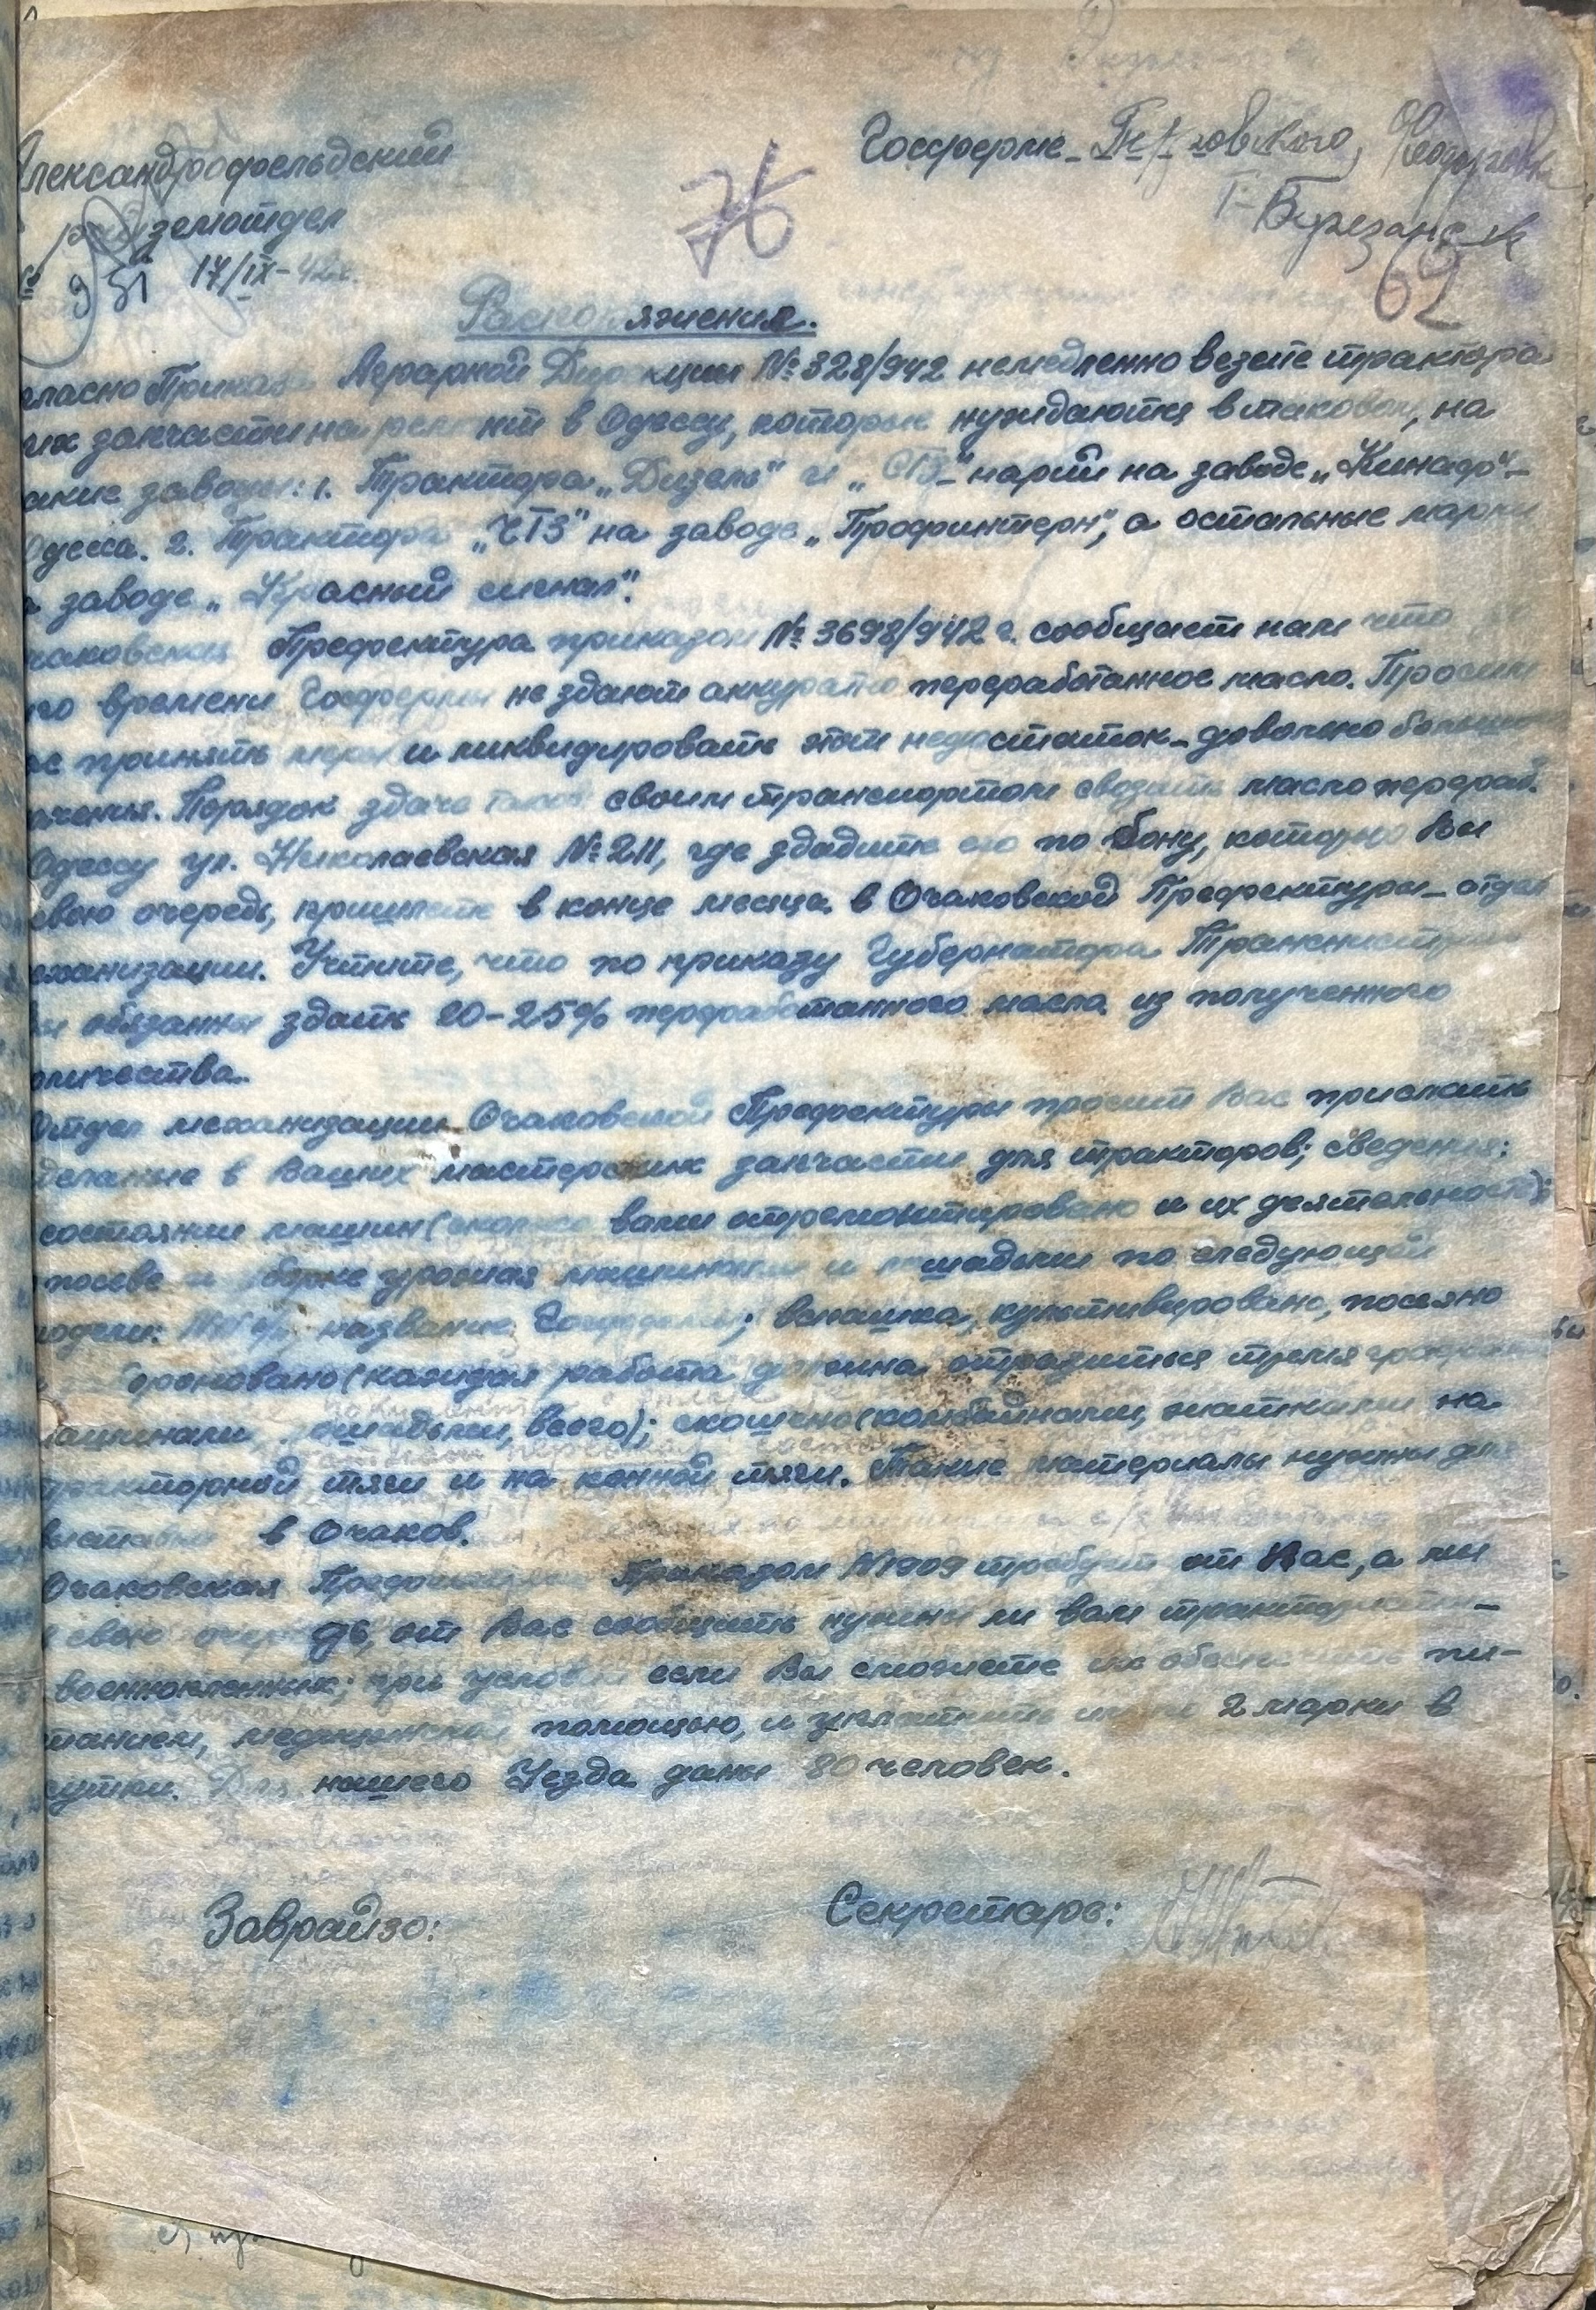 лександрофельдский
рай земотдел
№ 951 17/IX-42г.
76
Госферме
Березан
62
Распоряжение.
гласно Приказа Аграрной Дирекции № 328/942 немедленно везете трактора
их запчасти на ремонт в Одессу, которые нуждаются в таковом, на
акие заводы: 1. Трактора „Дизель" и „СТЗ"-нарти на заводе „Кинап"-
десса. 2. Трактора „ЧТЗ" на заводе „Профинтерн", а остальные марки
а заводе „Красный сигнал".
чаковская Префектура приказом № 3698/942 г. сообщает нам что
го времени Госфермы не здают аккуратно переработанное масло. Просим
ас принять меры и ликвидировать этот недостаток-довольно большого
ачения. Порядок здачи таков своим транспортом свозить масло перераб.
Одессу ул. Николаевская № 211, где здадите его по бону, который Вы
свою очередь, пришлете в конце месяца в Очаковской Префектуры-отдел
еханизации. Учтите, что по приказу Губернатора Транснистрии
ы обязаны здать 20-25% переработанного масла из полученного
оличества.
Отдел механизации Очаковской Префектуры просит Вас прислать
деланые в Ваших мастерских запчасти для тракторов; сведения:
состоянии машин (сколько вами отремонтировано и их деятельность);
посеве и уборке урожая машинами и лошадьми по следующей
одели: №№ п/п, название Госфермы; вспашка, культивировано, посеяно
бороновано (каждая работа должна отразиться тремя графами
ашинами, лошадьми, всего); скошено (комбайнами, жатками на
ракторной тяги и на конной тяги. Такие материалы нужны для
в Очаков.
Очаковская Префектура Приказом № 1909 требует от Нас, а мы
свою очередь, от Вас сообщить нужны ли вам трактористы-
военнопленных; при условии если Вы сможете их обеспечить пи-
танием, медицинской помощью, и уплатить им по 2 марки в
сутки. Для нашего Уезда даны 80 человек.
Заврайзо:
Секретарь: